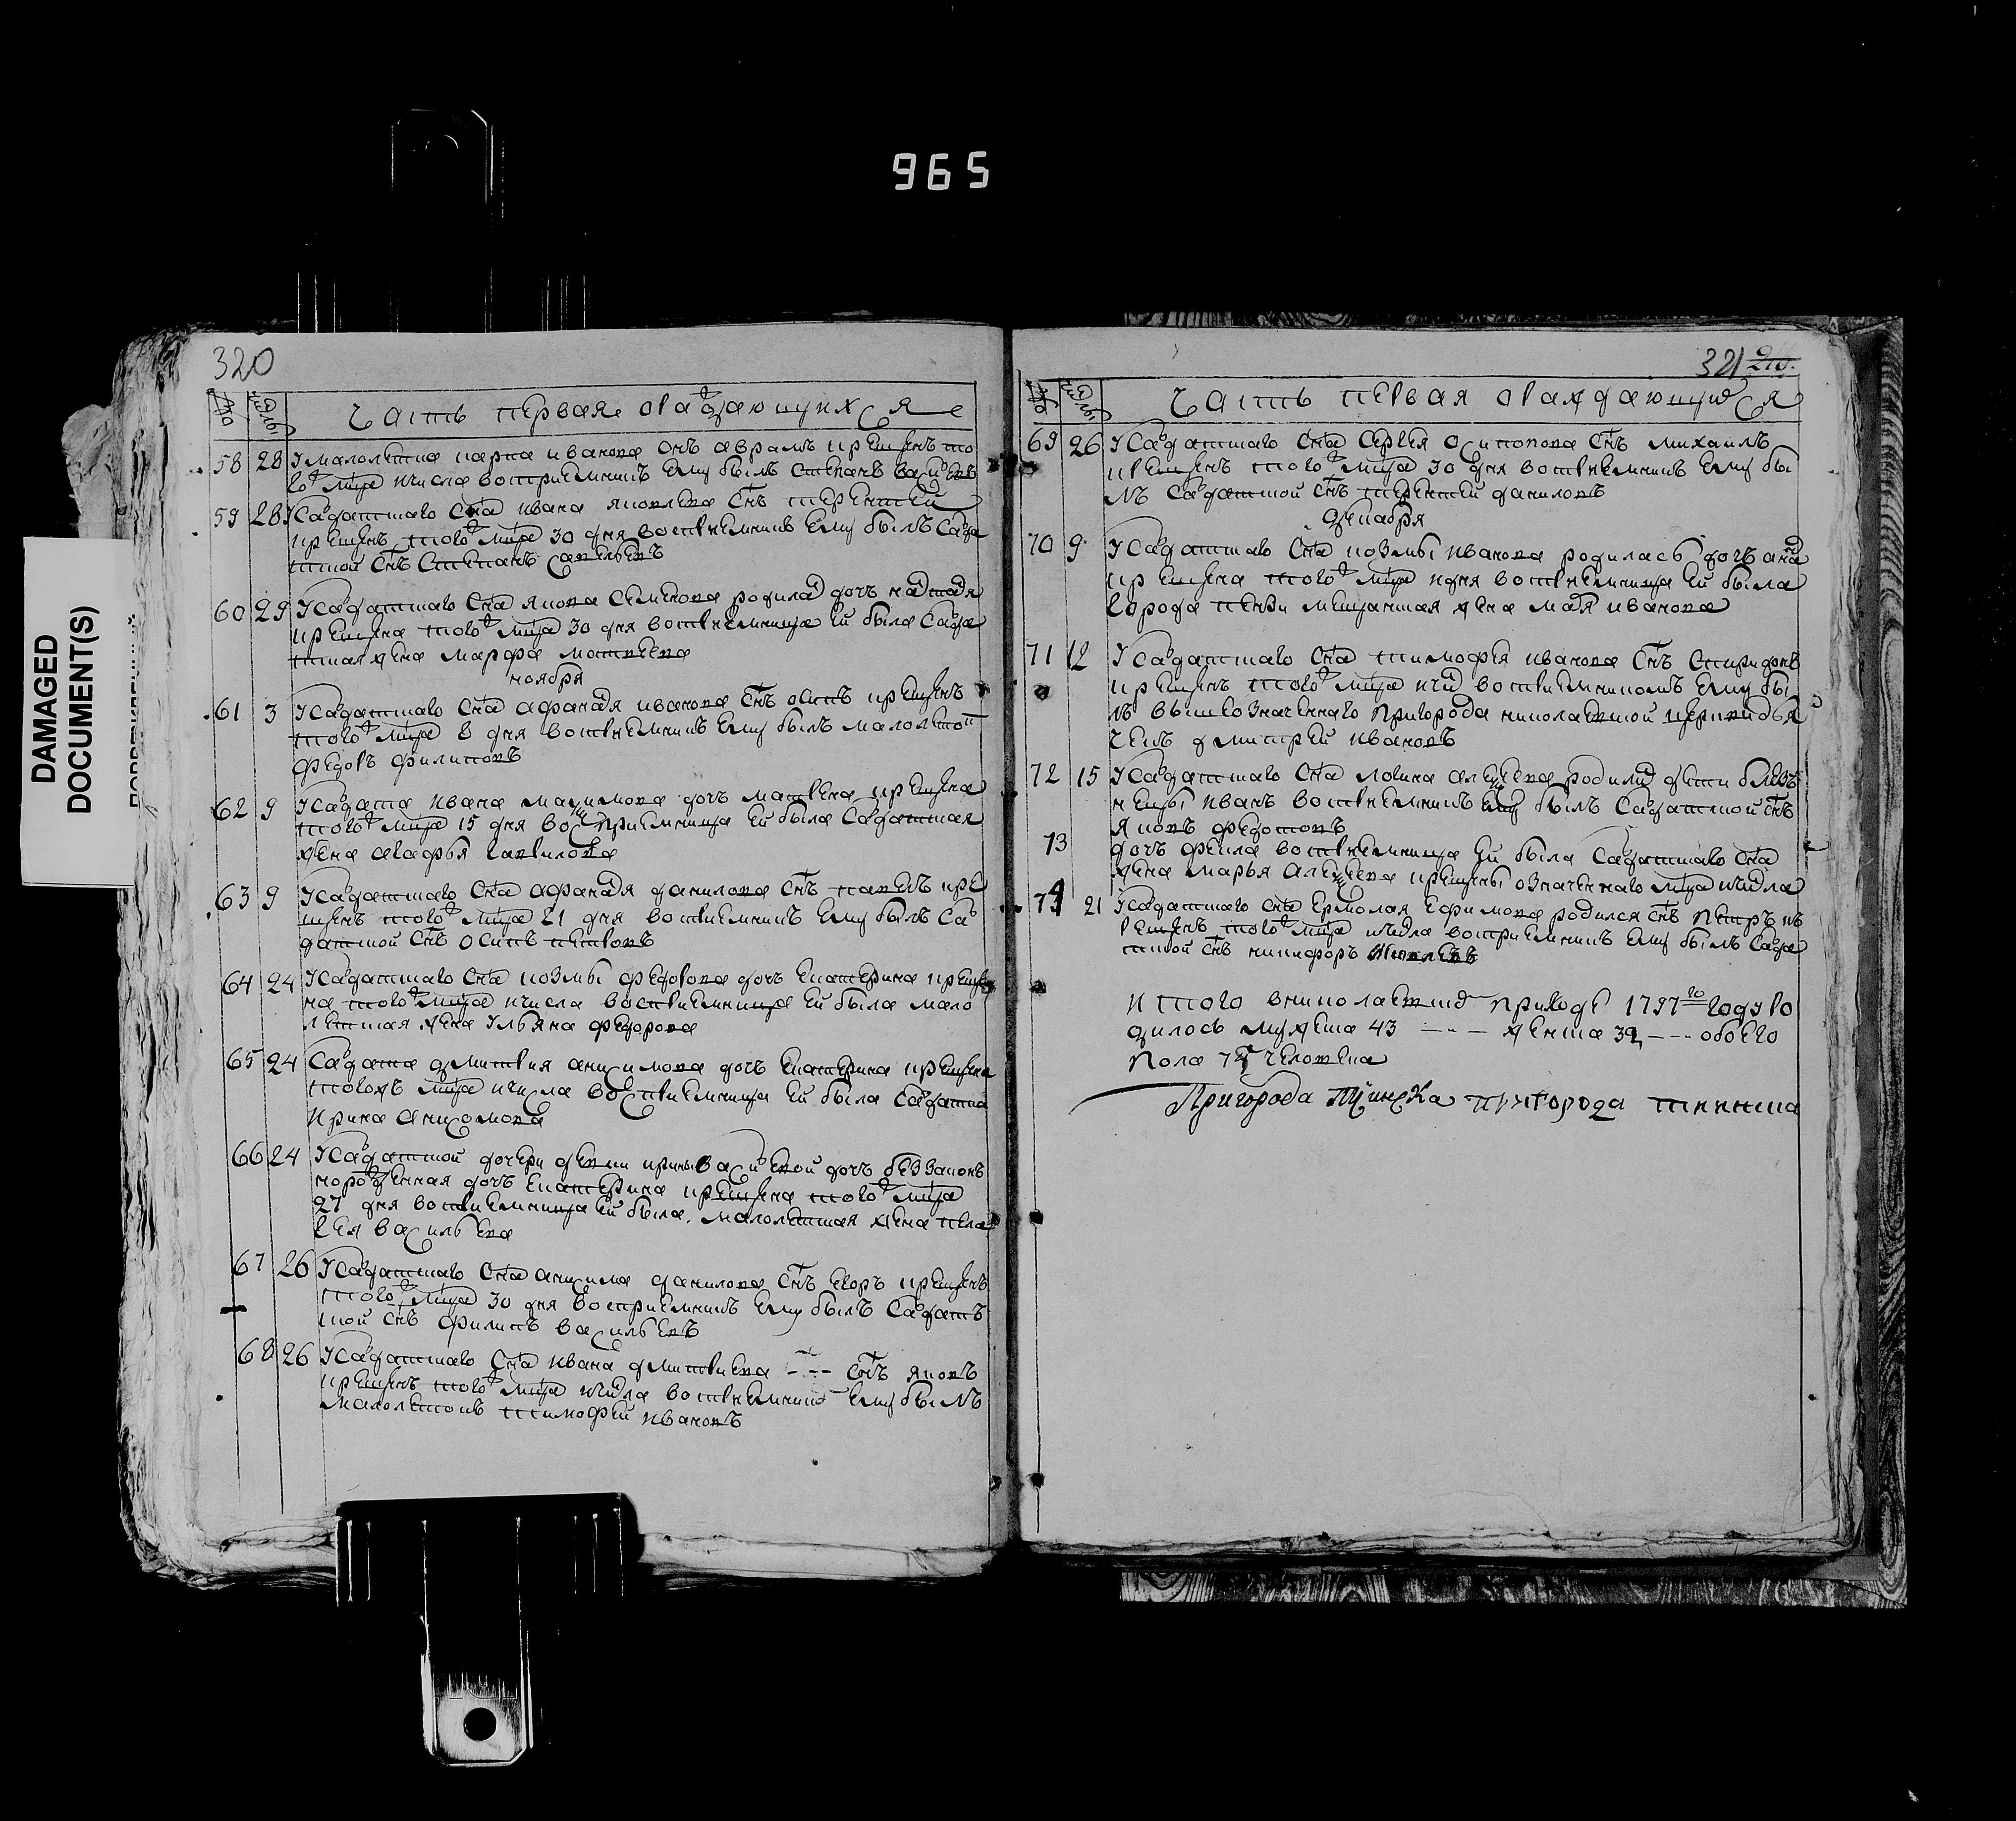 965
DAMAGED
DOCUMENT(S)
320
Часть первая ораждающихся
58 28 У малолетка карпа иванова снъ аврамъ крещенъ то
гожъ мца ичисла восприемникъ ему былъ степанъ васильевъ
59 28 У салдатскаго сна ивана яковлева снъ терентей
крещенъ тогожъ мца 30 дня восприемникъ ему былъ салда
тской снъ степанъ савельевъ
60 29 У салдатскаго сна якова семенова родилас дочъ настася
крещена тогожъ мца 30 дня восприемница ей была салда
тская жена марфа матвеева
ноября
61 3 У салдатскаго сна афанася иванова снъ осипъ крещенъ
тогожъ мца 8 дня восприемникъ ему былъ малолетокъ
федоръ филиповъ
62 9 У салдата ивана максимова дочъ матвена крещена
тогожъ мца 15 дня восприемница ей была салдатская
жена агафья гаврилова
63 9 У салдатскаго сна афанася данилова снъ павелъ кре
щенъ тогожъ мца 21 дня восприемникъ ему былъ сал
датской снъ осипъ петровъ
64 24 У салдатскаго сна козмы федорова дочъ екатерина креще
на тогожъ мца ичисла восприемница ей была мало
летская жена ульяна федорова
65 24 Салдата дмитрия анисимова дочъ екатерина крещена
тогожъ мца ичисла восприемница ей была салдатка
ирина анисомова
66 24 У салдатской дочери девки ирины васильевой дочъ беззаконъ
норожденная дочъ екатерина крещена тогожъ мца
27 дня восприемница ей была малолетская жена пела
гея васильева
67 26 У салдатскаго сна анисима данилова снъ егоръ крещенъ
тогожъ мца 30 дня восприемникъ ему былъ салдатъ
ской снъ филипъ васильевъ
68 26 У салдатскаго сна ивана дмитриева --- снъ яковъ
крещенъ тогожъ мца ичисла восприемникъ ему былъ
малолетокъ тимофей ивановъ
321
Часть первая ораждающихся
69 26 У салдатскаго сна сергея осипова снъ михаилъ
крещенъ тогожъ мца 30 дня восприемникъ ему бы
лъ салдатской снъ терентей даниловъ
декабря
70 9 У салдатскаго сна козмы иванова родилась дочъ анна
крещена тогожъ мца идня восприемница ей была
города пензы мещанская жена маря иванова
71 12 У салдатскаго сна тимофея иванова снъ спиридонъ
крещенъ тогожъ мца ичис восприемникомъ ему бы
лъ вышеозначеннаго пригорода николаевской церкви дья
чекъ дмитрей ивановъ
72 15 У салдатскаго сна логина алексеева родилис дети близъ
нецы иванъ восприемникъ ему былъ салдатской снъ
яковъ федотовъ
73 дочъ фекла восприемница ей была салдатскаго сна
жена марья алексеева крещены означеннаго мца ичисла
74 21 У салдатскаго сна ермолая ефимова родился снъ петръ кр
ещенъ тогожъ мца ичисла восприемникъ ему былъ салда
тской снъ никифоръ
итого вниколаевско приходе 1797го году ро
дилось мужеска 43 --- женска 32 --- обоего
пола человека
Пригорода пригорода